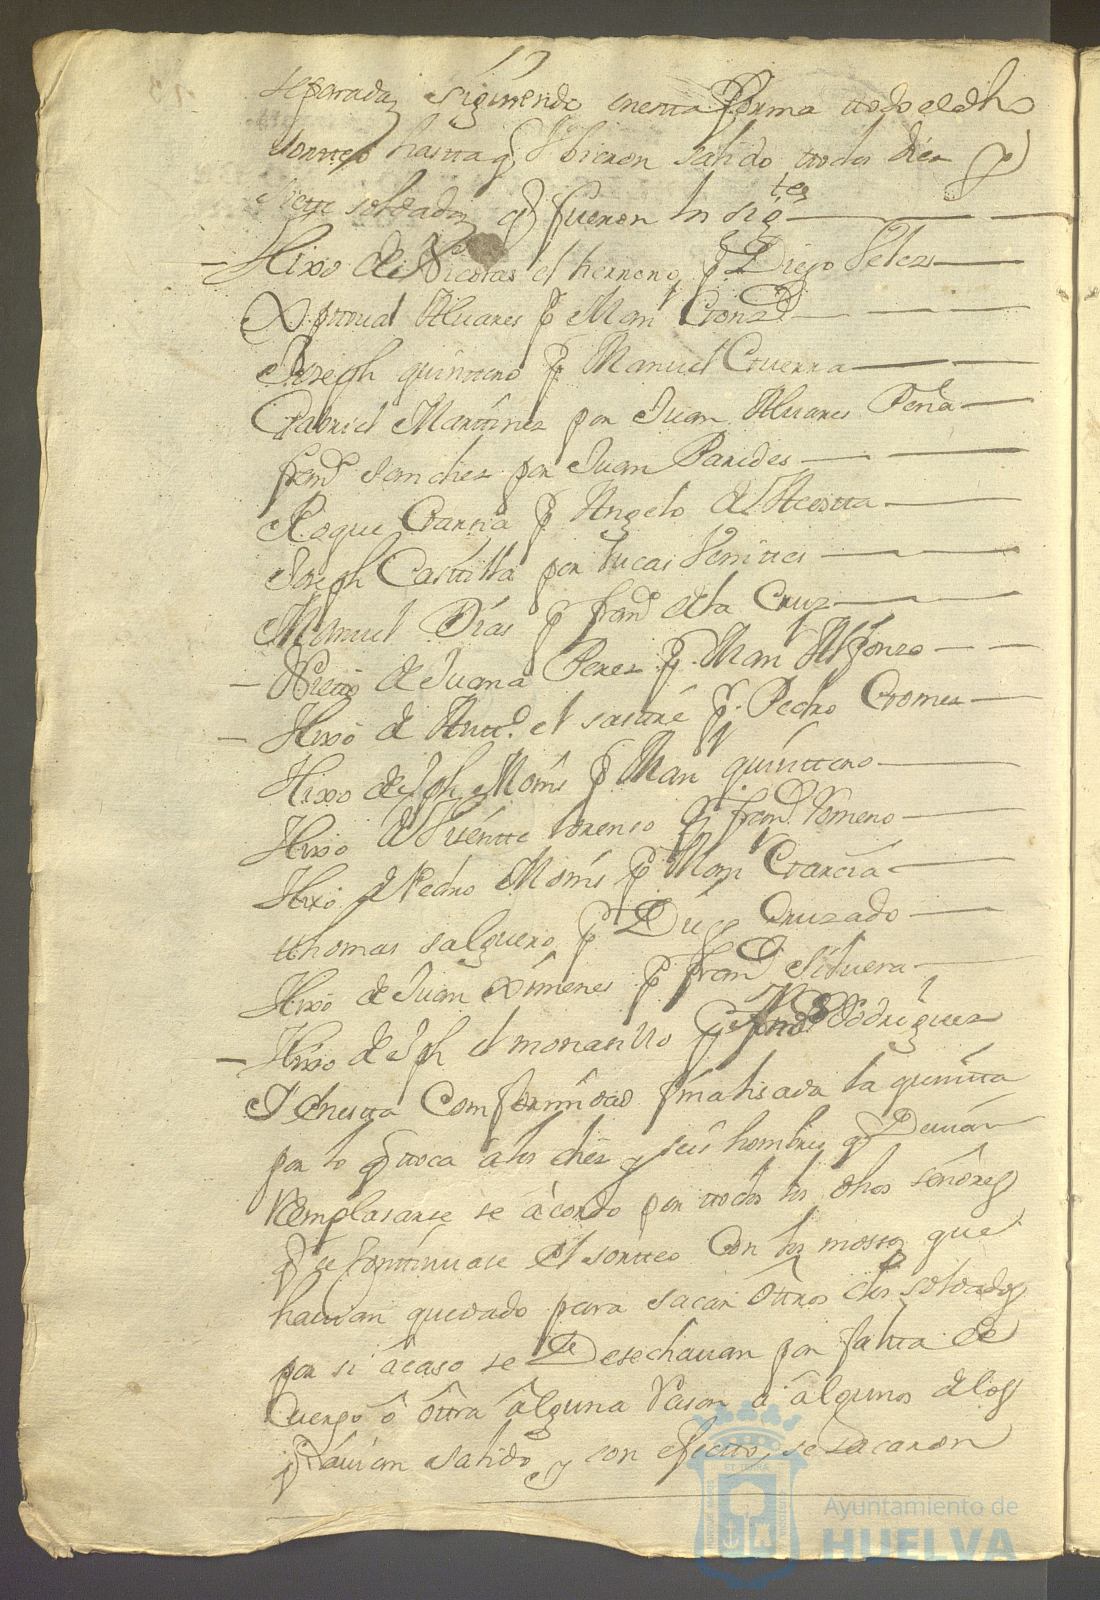 separada siguiendo en esta forma ttodo el dho
sortteo hastta q hubieron salido ttodos diez y
siete soldados q fueron los sig.tes
Hixo de Nicolas el herrero p.r Diego Velez
Xpttoual Aluares p.r Man.l Gonz.z
Joseph quinttero p.r Manuel Guerra
Gabriel Marttines por Juan Aluares Peña
fran.co Sanchez por Juan Paredes
Roque Garzia p.r Angelo de Acostta
Joseph Casttilla por Lucas Venittes
Manuel Dias p.r fran.co de la Cruz
Nietto de Juana Perez p.r Man.l Alfonzo
Hixo de Antt.o el sastre p.r Pedro Gomez
Hixo de Jph Morris p.r Man.l quinttero
Hixo de Visentte Lorenso p.r fran.co Romero
Hixo de Pedro Morris p.r Man.l Garcia
tthomas salguero p.r Diego Cruzado
Hixo de Juan Ximenes p.r fran.co Siluera
Hixo de Jph el monasillo p.r Rodriguez
Y en esta Comformidad finalisada la quintta
por lo q ttoca a los diez y seis hombres q Deuian
Remplasarse se acordo por ttodos los dhos señores
q se Conttinuase el sortteo Con los mossos que
hauian quedado para sacar ottros dos soldados
por si acaso se Desechauan por faltta de
Cuerpo o ottra alguna Rason a algunos de los
q hauian salido y con efecto se sacaron
Ayuntamiento de
HUELVA